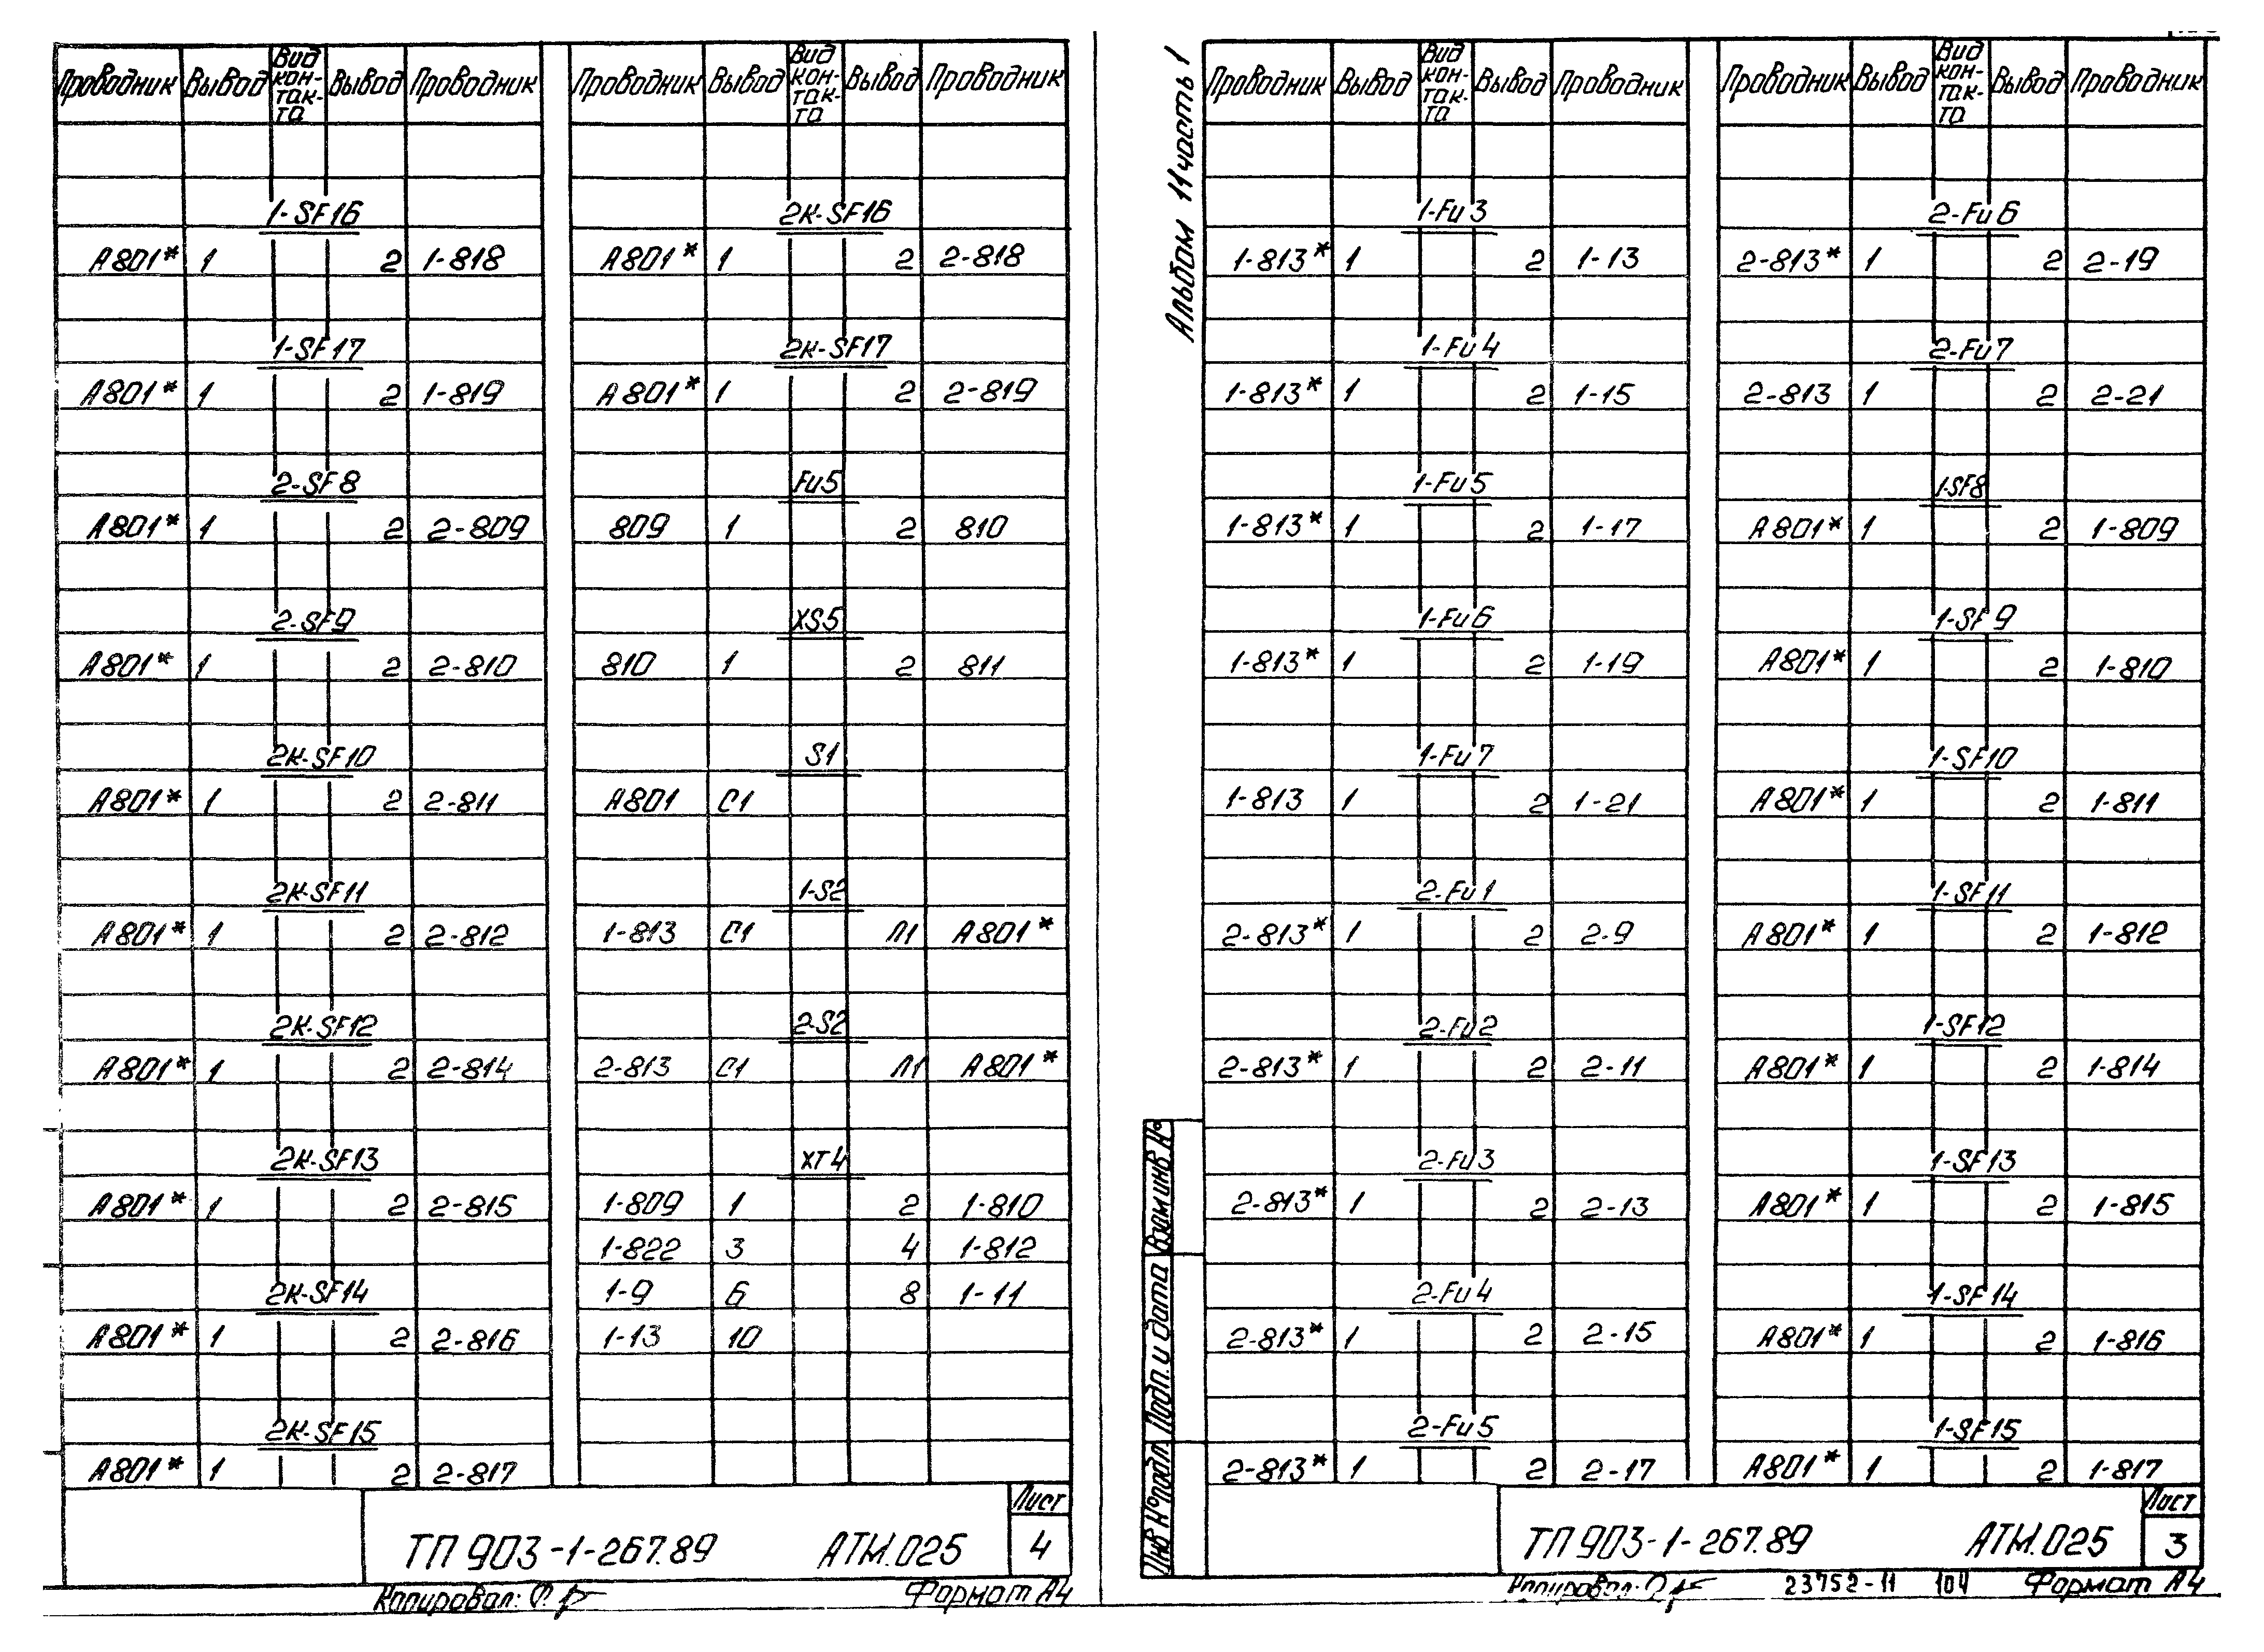 Проводник Вывод Вид кон-так-та Вывод Проводник
1-SF16
А801* 1 2 1-818
1-SF17
А801* 1 2 1-819
2-SF8
А801* 1 2 2-809
2-SF9
А801* 1 2 2-810
2К-SF10
А801* 1 2 2-811
2К-SF11
А801* 1 2 2-812
2К-SF12
А801* 1 2 2-814
2К-SF13
А801* 1 2 2-815
2К-SF14
А801* 1 2 2-816
2К-SF15
А801* 1 2 2-817
Проводник Вывод Вид кон-так-та Вывод Проводник
2К-SF16
А801* 1 2 2-818
2К-SF17
А801* 1 2 2-819
Fu5
809 1 2 810
XS5
810 1 2 811
S1
А801 С1
1-S2
1-813 С1 Л1 А801*
2-S2
2-813 С1 Л1 А801*
ХТ4
1-809 1 2 1-810
1-822 3 4 1-812
1-9 6 8 1-11
1-13 10
ТП 903-1-267.89 АТМ.025
Лист
4
Копировал:
Формат А4
Альбом 11 часть 1
Проводник Вывод Вид кон-так-та Вывод Проводник
1-Fu3
1-813* 1 2 1-13
1-Fu4
1-813* 1 2 1-15
1-Fu5
1-813* 1 2 1-17
1-Fu6
1-813* 1 2 1-19
1-Fu7
1-813 1 2 1-21
2-Fu1
2-813* 1 2 2-9
2-Fu2
2-813* 1 2 2-11
2-Fu3
2-813* 1 2 2-13
2-Fu4
2-813* 1 2 2-15
2-Fu5
2-813* 1 2 2-17
Проводник Вывод Вид кон-так-та Вывод Проводник
2-Fu6
2-813* 1 2 2-19
2-Fu7
2-813 1 2 2-21
1-SF8
А801* 1 2 1-809
1-SF9
А801* 1 2 1-810
1-SF10
А801* 1 2 1-811
1-SF11
А801* 1 2 1-812
1-SF12
А801* 1 2 1-814
1-SF13
А801* 1 2 1-815
1-SF14
А801* 1 2 1-816
1-SF15
А801* 1 2 1-817
Взам инв. №
Подп. и дата
Инв № подл.
ТП 903-1-267.89 АТМ.025
Лист
3
Копировал:
23752-11 104
Формат А4